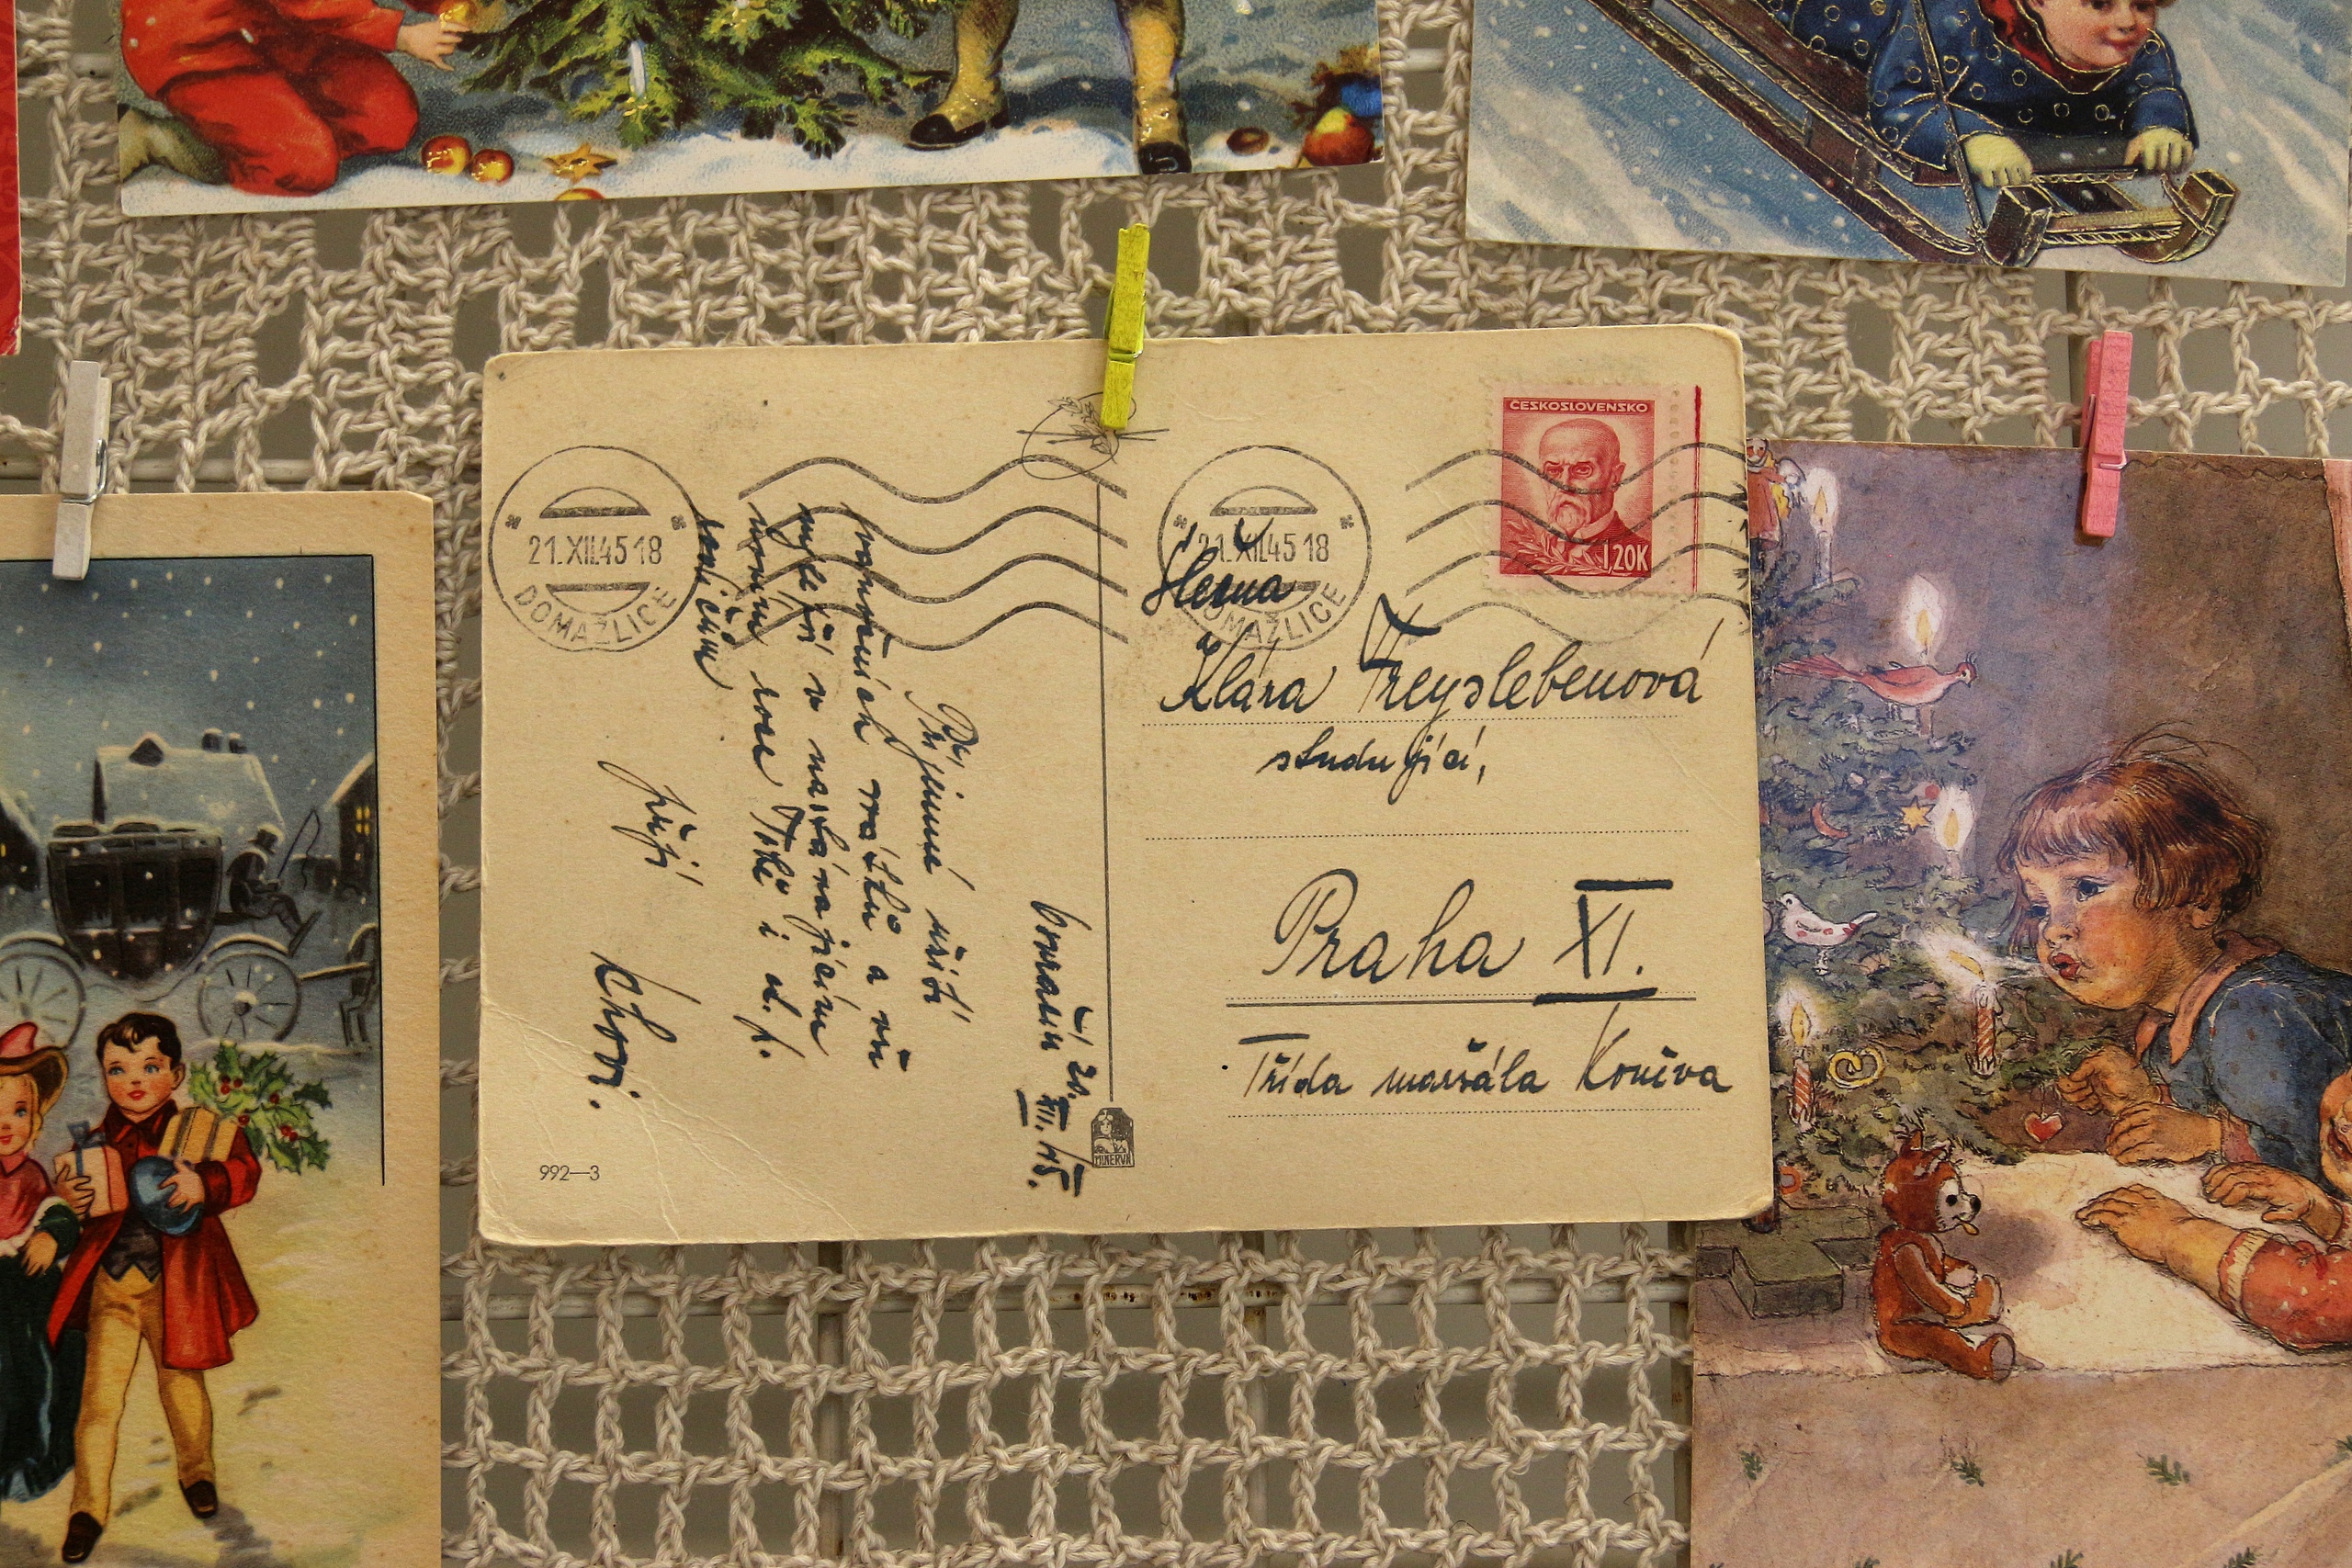 21.XII.45 18
DOMAŽLICE
21.XII.45 18
DOMAŽLICE
ČESKOSLOVENSKO
1,20K
Slečna
Klára Freyslebenová
studující,
Praha XI.
Třída maršála Koněva
20. XII. 45.
Příjemné užití
vánočních svátků a vše
nejlepší v nastávajícím
novém roce Tobě i ct.
rodičům
přejí
992—3
MINERVA